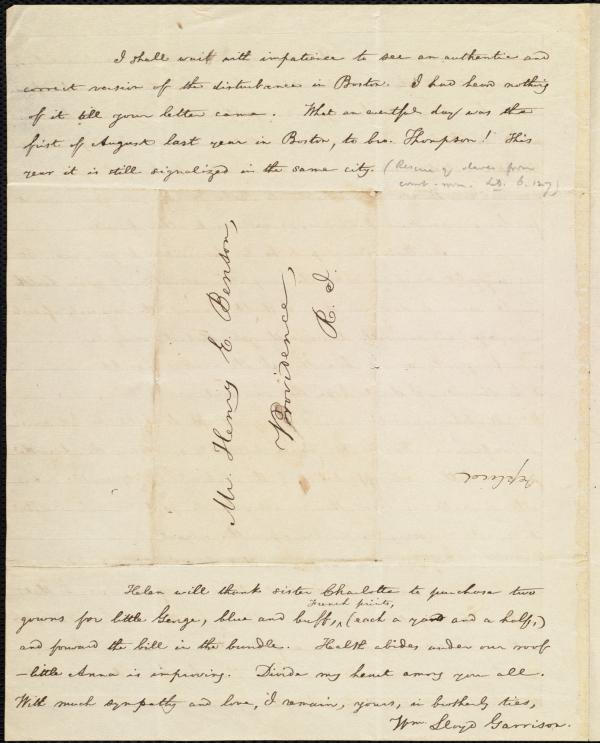 I shall wait with impatience to see an authentic and
correct version of the disturbance in Boston. I had heard nothing
of it till your letter came. What an eventful day was the
first of August last year in Boston, to bro. Thompson! This
year it is still signalized in the same city. (Rescue of slaves from
court-room. Lib. 6. 127)
Mr. Henry E. Benson,
Providence,
R. I.
Helen will thank sister Charlotte to purchase two
French prints,
gowns for little George, blue and buff, ^ (each a yard and a half,)
and forward the bill in the bundle. Health abides under our roof
—little Anna is improving. Divide my heart among you all.
With much sympathy and love, I remain, yours, in brotherly ties,
Wm. Lloyd Garrison.